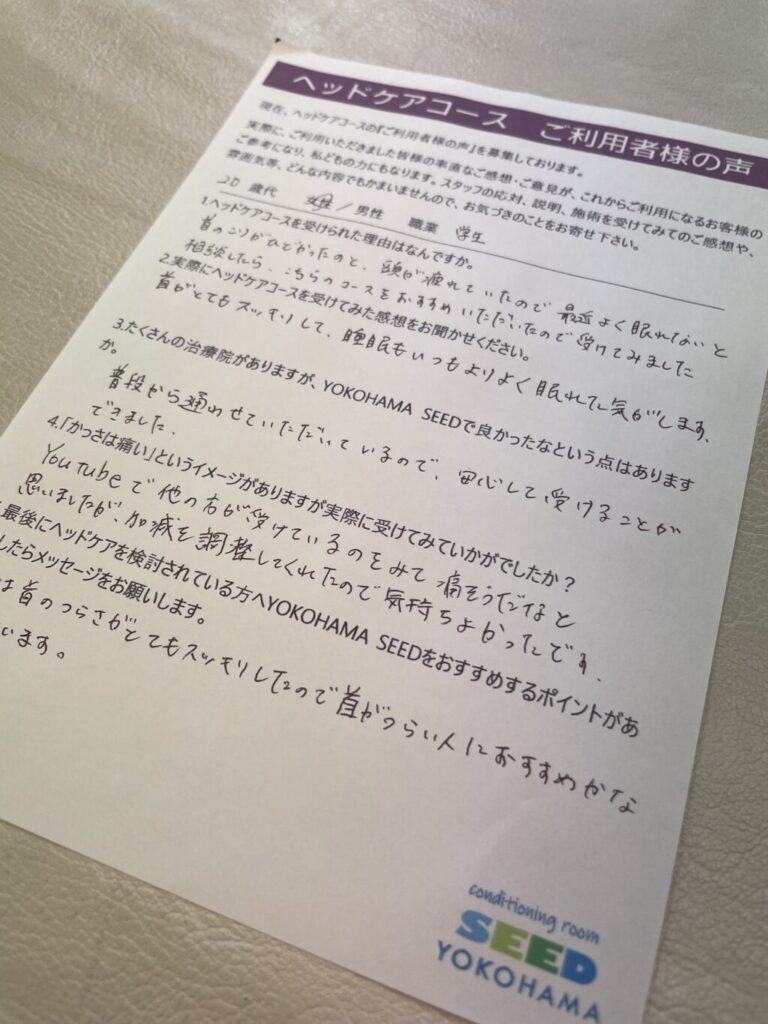 ヘッドケアコース ご利用者様の声
現在、ヘッドケアコースの『ご利用者様の声』を募集しております。
実際に、ご利用いただきました皆様の率直なご感想・ご意見が、これからご利用になるお客様の
ご参考になり、私どもの力にもなります。スタッフの応対、説明、施術を受けてみてのご感想や、
雰囲気等、どんな内容でもかまいませんので、お気づきのことをお寄せ下さい。
20 歳代 女性 / 男性 職業 学生
1.ヘッドケアコースを受けられた理由はなんですか。
首のこりがひどかったのと、頭が疲れていたので最近よく眠れないと
相談したら、こちらのコースをおすすめいただいたので受けてみました
2.実際にヘッドケアコースを受けてみた感想をお聞かせください。
首がとてもスッキリして、睡眠もいつもよりよく眠れた気がします、
3.たくさんの治療院がありますが、YOKOHAMA SEEDで良かったなという点はあります
か。
普段から通わせていただいているので、安心して受けることが
できました、
4.「かっさは痛い」というイメージがありますが実際に受けてみていかがでしたか？
Youtubeで他の方が受けているのをみて痛そうだなと
思いましたが、加減を調整してくれたので気持ちよかったです、
最後にヘッドケアを検討されている方へYOKOHAMA SEEDをおすすめするポイントがあ
したらメッセージをお願いします。
は首のつらさがとてもスッキリしたので首がつらい人におすすめかな
います。
conditioning room
SEED
YOKOHAMA